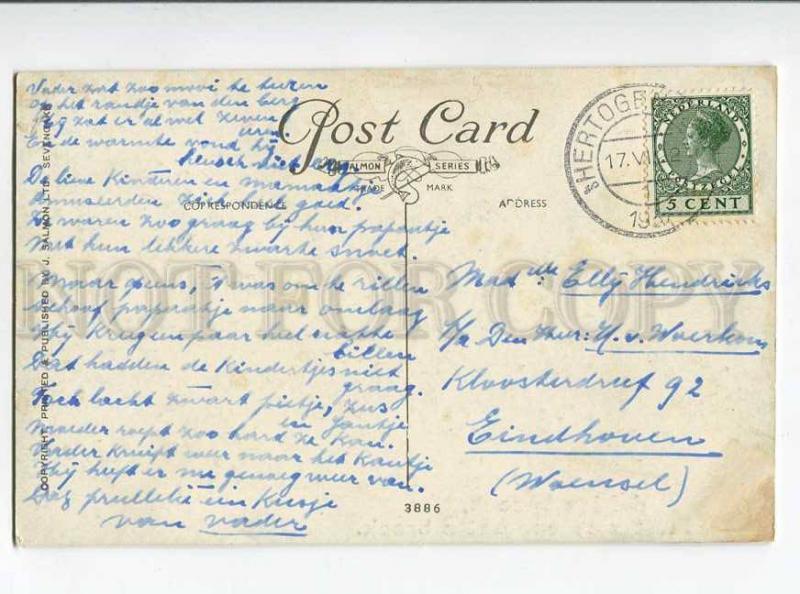 Vader zat zoo mooi te turen
op het randje van den berg
Hij zat er al wel zeven
uren
En de warmte vond hij
heusch niet erg
De lieve Kinderen en mamaatje
amuseerden zich goed.
Ze waren zoo graag bij hun papaatje
Met hun lekkere zwarte snoet.
Maar was om te rillen
schoof papaatje naar omlaag
Hij Kreeg een paar
billen
Dat hadden de Kindertjes niet
graag.
Toch lacht zwart pietje, zus
en Jantje
Moeder roept zoo hard ze Kan.
Vader Kruipt weer naar het Kantje
Hij heeft er genoeg weer van.
Dag prulletje een Kusje
van vader
Post Card
SALMON SERIES
TRADE MARK
CORRESPONDENCE
ADDRESS
COPYRIGHT. PRINTED & PUBLISHED BY J. SALMON LTD. SEVENOAKS
3886
'S HERTOGENB
17.VI
NEDERLAND
5 CENT
Mad.lle Elly Hendriks
p/a Den Heer: H. v. Woerkom
Kloosterdreef 92
Eindhoven
(Woensel)
NOT FOR COPY